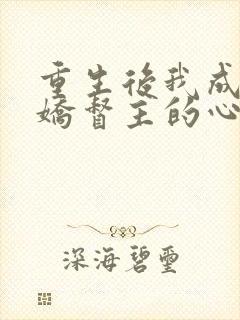 重生後我成
嬌督主的心
深海碧璽